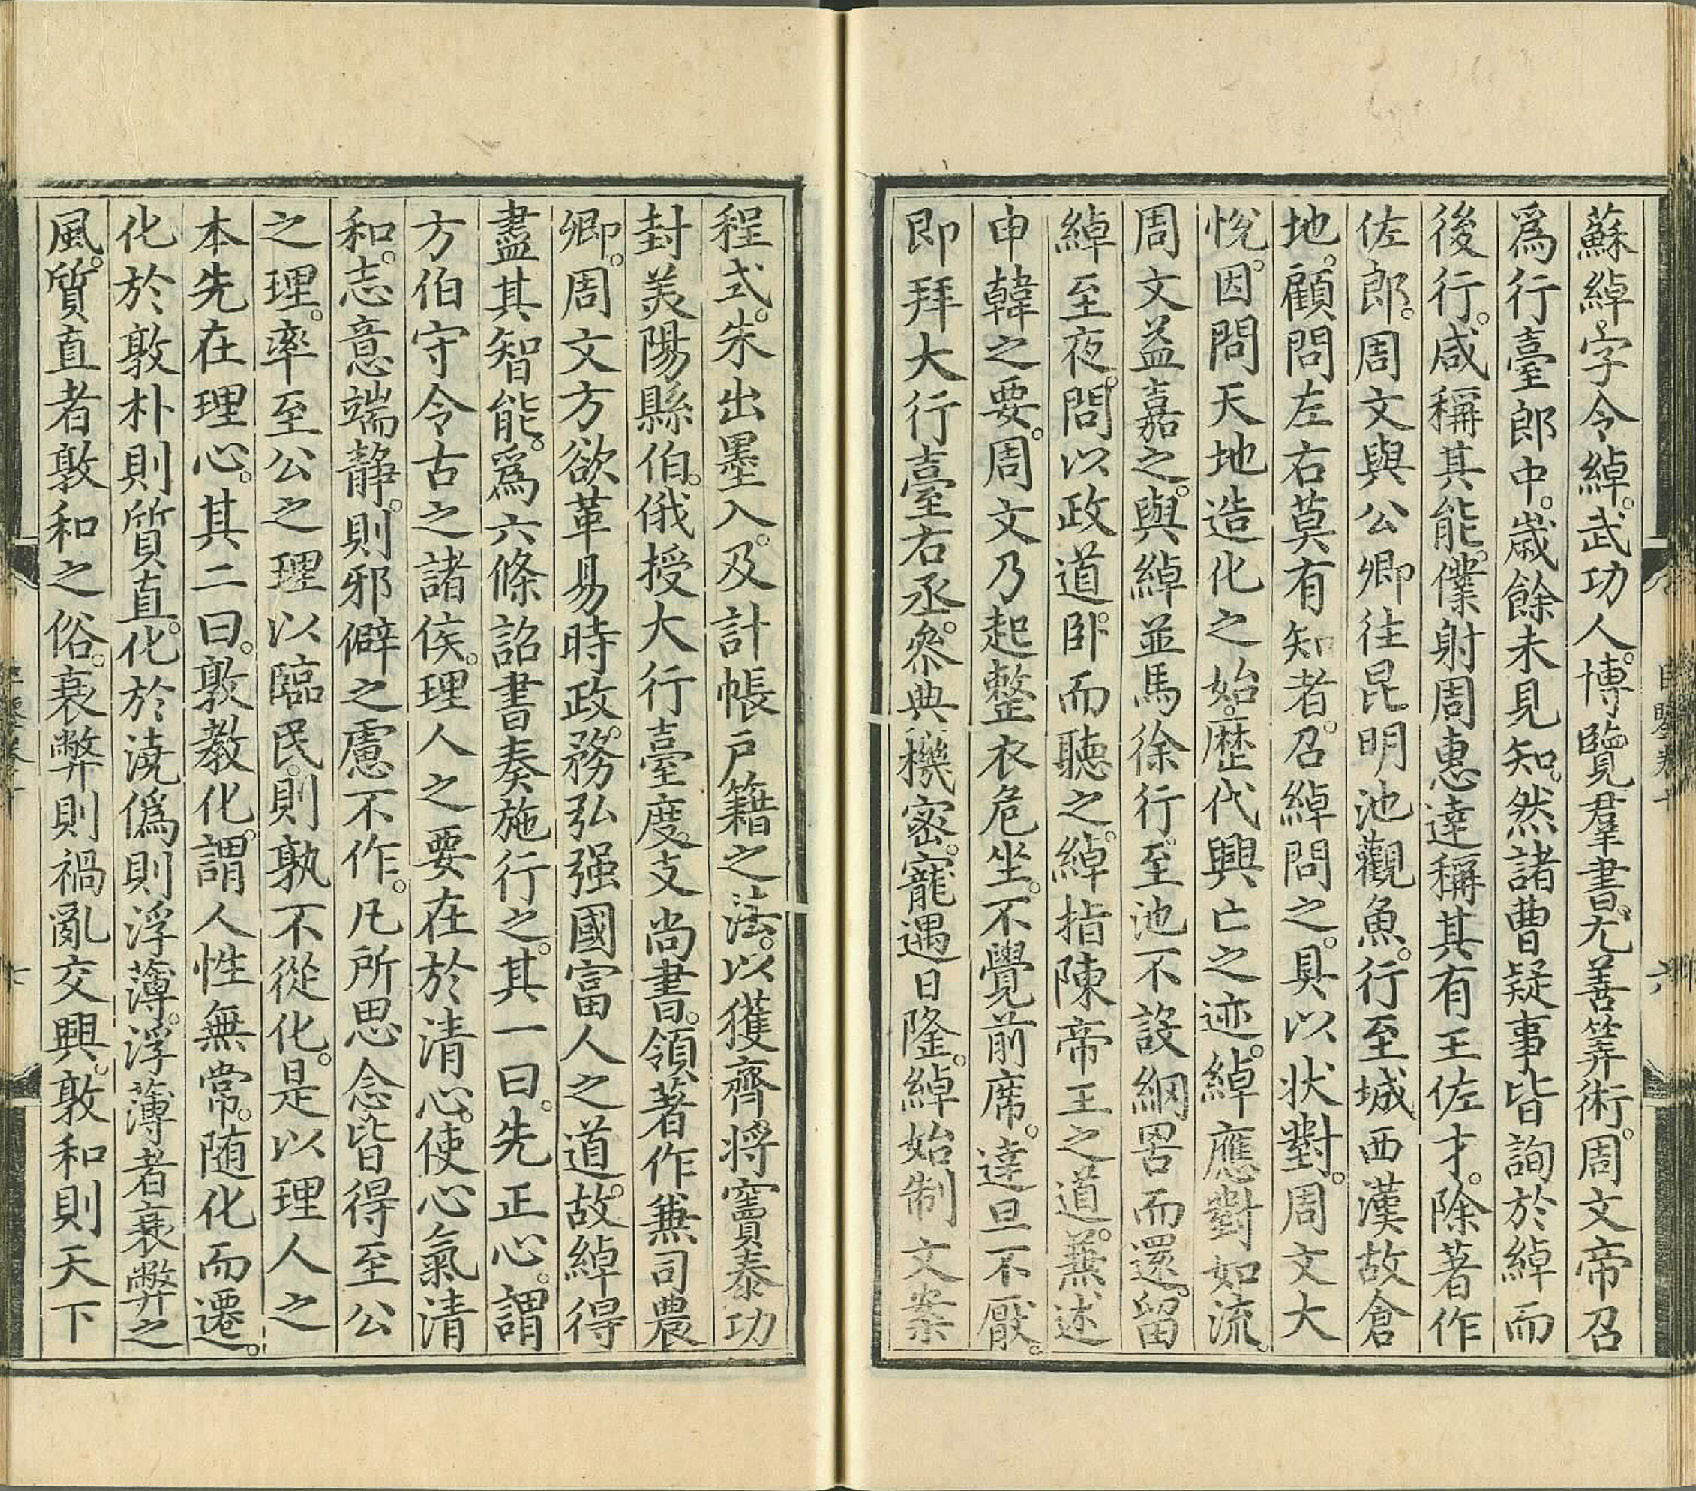 蘇綽字令綽。武功人。博覽羣書。尤善筭術。周文帝召
爲行臺郎中。歲餘未見知。然諸曹疑事皆詢於綽而
後行。咸稱其能。僕射周惠達稱其有王佐才。除著作
佐郎。周文與公卿往昆明池觀魚。行至城西漢故倉
地。顧問左右莫有知者。召綽問之。具以状對。周文大
悅。因問天地造化之始。歷代興亡之迹。綽應對如流。
周文益嘉之。與綽並馬徐行。至池不設網罟而還。留
綽至夜。問以政道。卧而聽之。綽指陳帝王之道。蕪述
申韓之要。周文乃起整衣危坐。不覺前席。達旦不厭。
即拜大行臺右丞。叅典機密。寵遇日隆。綽始制文案
程式。朱出墨入。及計帳戶籍之法。以獲齊將竇泰功
封美陽縣伯。俄授大行臺度支尚書。領著作兼司農
卿。周文方欲革易時政。務弘强國富人之道。故綽得
盡其智能。爲六條詔書奏施行之。其一曰。先正心。謂
方伯守令古之諸侯。理人之要在於清心。使心氣清
和。志意端静。則邪僻之慮不作。凡所思念皆得至公
之理。率至公之理以臨民。則孰不從化。是以理人之
本先在理心。其二曰。敦教化。謂人性無常。随化而遷。
化於敦朴則質直。化於澆僞則浮薄。浮薄者衰弊之
風。質直者敦和之俗。衰弊則禍亂交興。敦和則天下